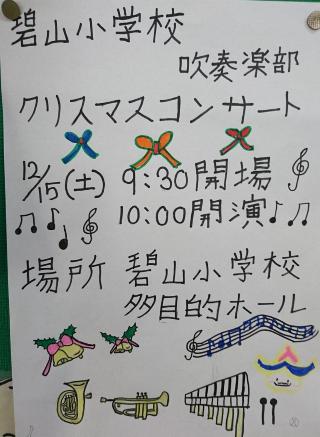 碧山小学校
吹奏楽部
クリスマスコンサート
12/15(土) 9:30開場
10:00開演
場所 碧山小学校
多目的ホール